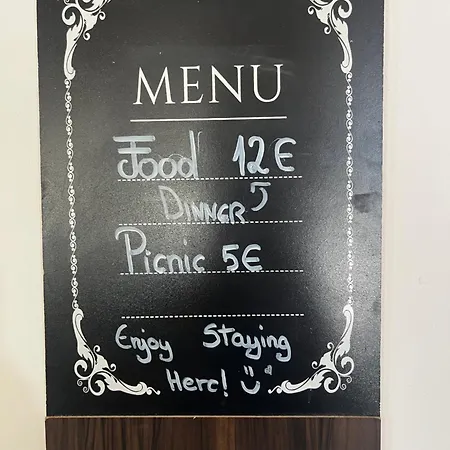 MENU
Food 12€
DINNER
Picnic 5€
Enjoy Staying
Here!